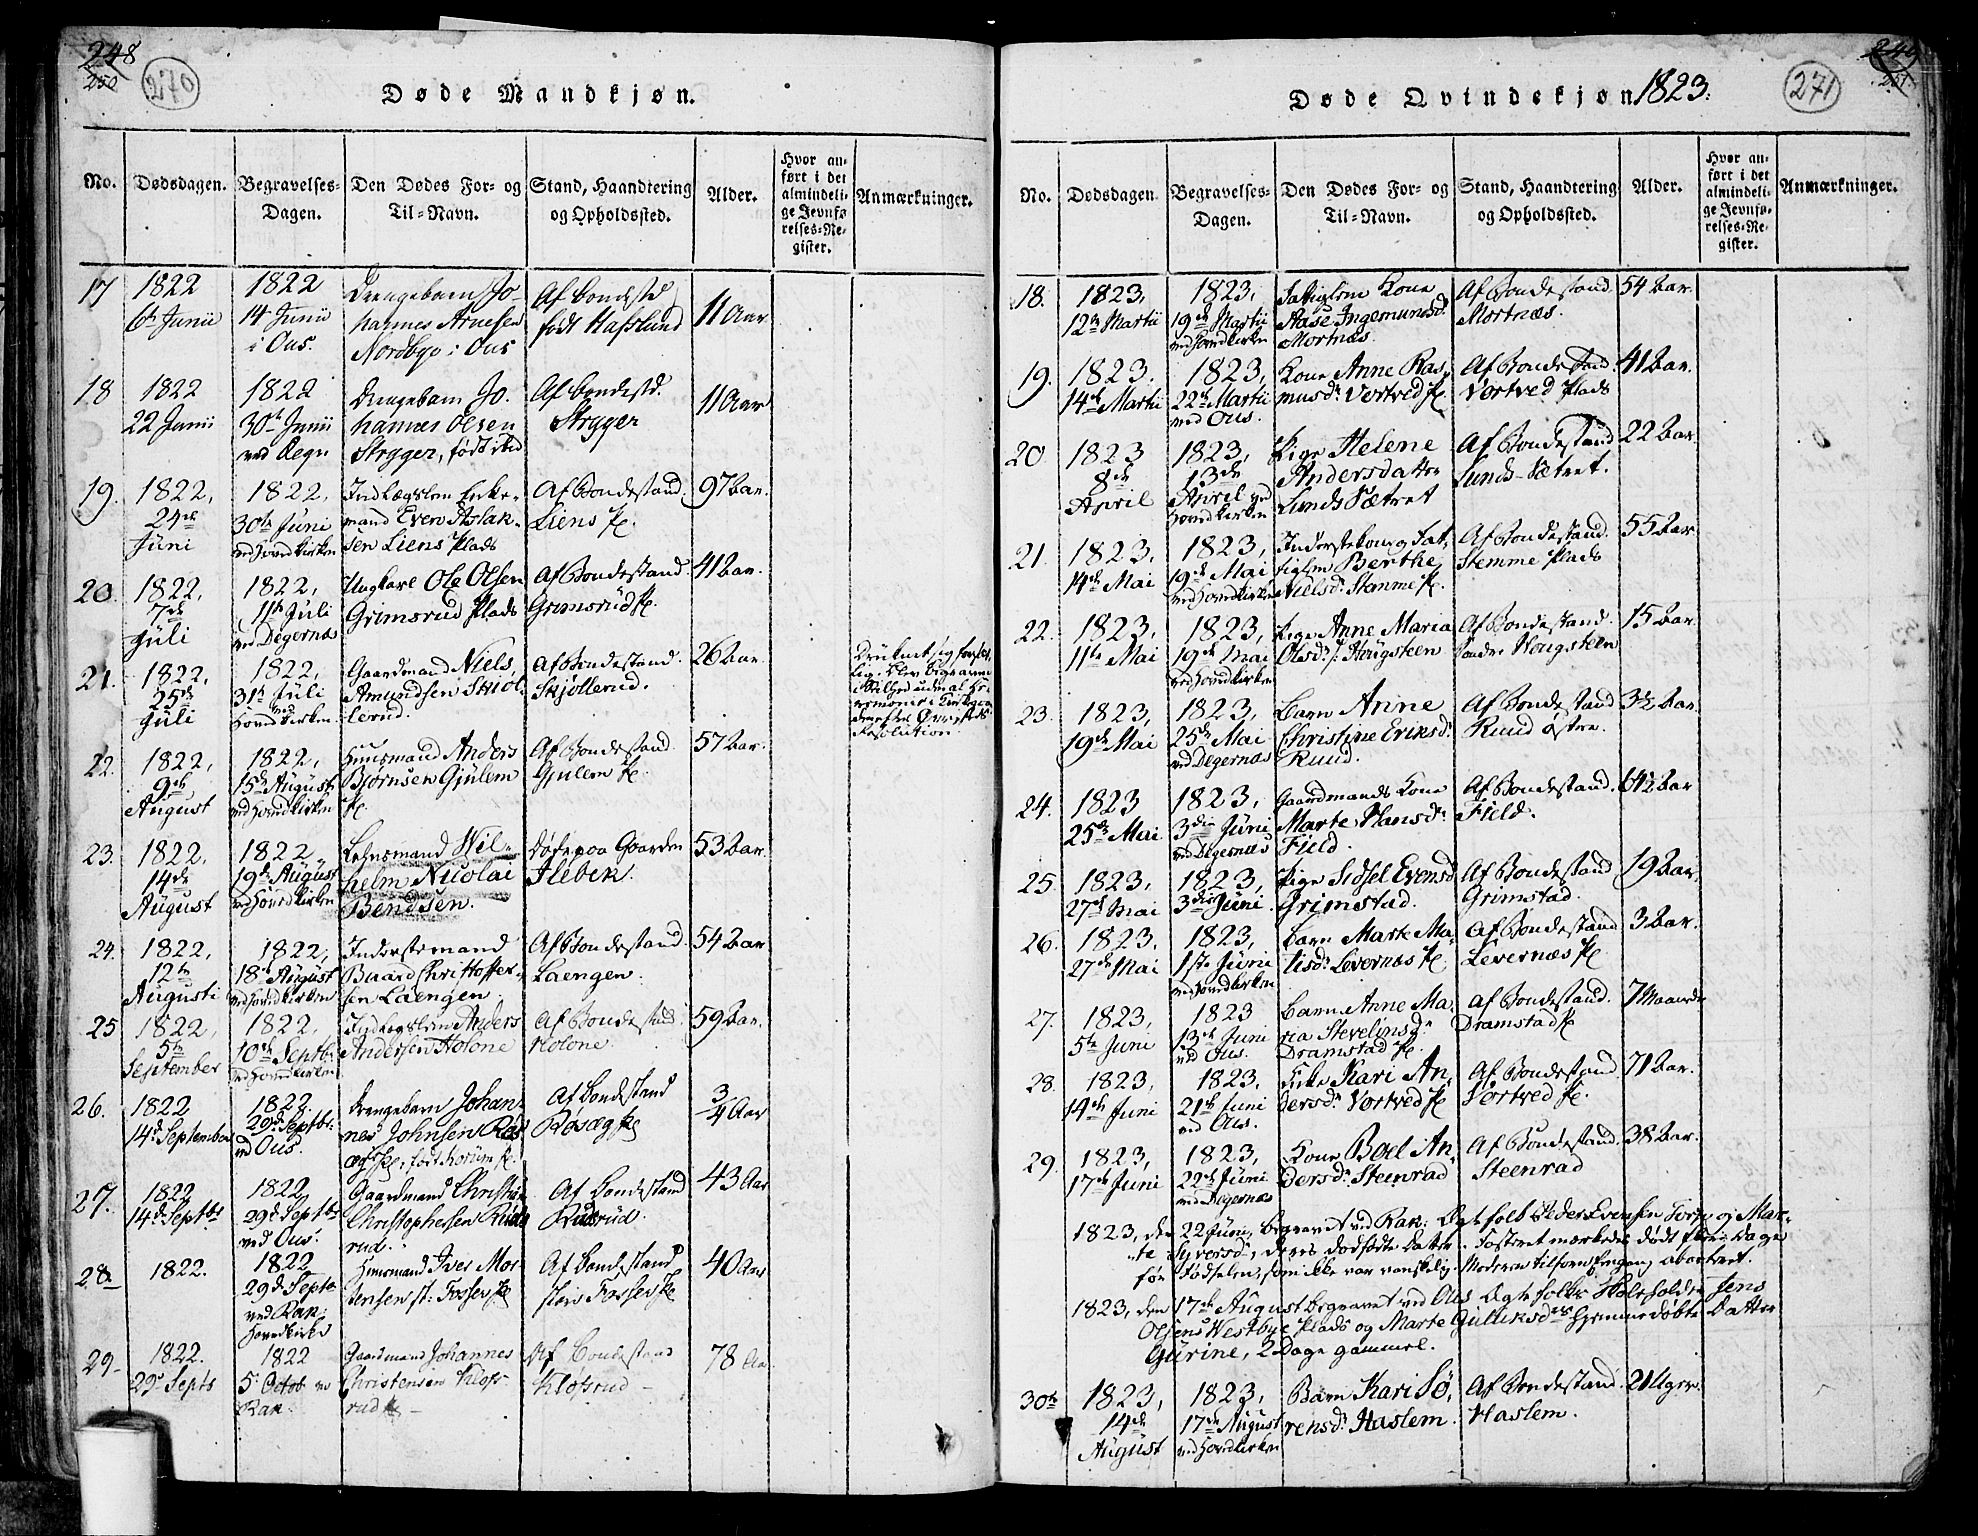 248
250
270
Døde Mandkjøn.
No.
Dødsdagen.
Begravelses-
Dagen.
Den Dødes For- og
Til-Navn.
Stand, Haandtering
og Opholdssted.
Alder.
Hvor an-
ført i det
almindeli-
ge Jevnfø
relses-Re-
gister.
Anmærkninger.
17
1822
6te Junii
1822
14 Junii
i Ous.
Drengebarn Jo-
hannes Arnesen
Nordbye i Ous
Af Bondestd
født Hafslund
11 Aar
18
1822
22 Junii
1822
30te Junii
ved Degn
Drengebarn Jo-
hannes Olsen
Stryger, født ibid
Af Bondestd.
Stryger
11 Aar
19.
1822,
24de
Juni
1822,
30te Juni
ved Hovedkirken
Indlægslem Enke-
mand Even Aslak-
sen Liens Plads
Af Bondestand.
Liens Pl.
97 Aar.
20.
1822,
7de
Juli
1822,
11te Juli
ved Degernæs
Ungkarl Ole Olsen
Grimsrud Plads
Af Bondestand
Grimsrud Pl.
41 Aar.
21.
1822,
25de
Juli
1822,
31te Juli
ved
Hovedkirken
Gaardmand Niels
Amundsen Skiøl-
lerud.
Af Bondestand.
Skjøllerud.
26 Aar.
Resolution.
22.
1822,
9de
August
1822,
15de August
ved Hovedkirken
Huusmand Anders
Bjørnsen Gjulem
Pl.
Af Bondestand.
Gjulem Pl.
57 Aar.
23.
1822,
14de
August
1822
19de August
ved Hovedkirken
Lehnsmand Wil-
helm Nicolai
Bendsen.
Døde paa Gaarden
Ileben.
53 Aar.
24.
1822,
12te
Augusti
1822,
18de August
ved Hovedkirken
Inderstemand
Baard Christoffer-
sen Laengen
Af Bondestand
Laengen.
54 Aar
25
1822,
5te
September
1822,
10de Septbr.
ved Hovedkirken
Indlegslem Anders
Andersen Holone
Af Bondestand
Holone.
59 Aar.
26.
1822
14d September
1822
29d Septbr.
ved Ous.
Drengebarn Johan-
nes Johnsen Røs-
Af Bondestand
Røsæg Pl
3/4 Aar
27.
1822
14d Septbr
1822
29d Septbr
ved Ous.
Gaardmand Christian
Christophersen Ruds-
rud.
Af Bondestand
Rudsrud.
43 Aar
28
1822.
1822
29d Septr
ved Rak:
Hovedkirke
Huusmand Iver Mor-
tensen st: Fosser Pl
Af Bondestand
store Fosser Pl
40 Aar
29
1822.
29d Septr
1822
5 Octob ved
Rak.
Gaardmand Johannes
Christensen Klofs-
rud
Af Bondestand
Klofsrud
78 Aar
249
251.
271
Døde Qvindekjøn 1823.
No.
Dødsdagen.
Begravelses-
Dagen.
Den Dødes For- og
Til-Navn.
Stand, Haandtering
og Opholdssted.
Alder.
Hvor an-
ført i det
almindeli-
ge Jevnfø-
relses-Re-
gister.
Anmærkninger.
18.
1823,
12te Martii
1823,
19de Martii
ved Hovedkirken
Fattiglem Kone
Aase Ingemundsd.
Mortnæs.
Af Bondestand.
Mortnæs.
54 Aar.
19.
1823.
14de Martii
1823,
22de Martii
ved Ous.
Kone Anne Ras-
musdr. Vortved Pl.
Af Bondestand.
Vortved Plads
41 Aar.
20
1823
8de
April
1823,
13de
April ved
Hovedkirken
Pige Helene
Andersdatter
Lunds Sætret
Af Bondestand
Lunds-Sætret.
22 Aar.
21.
1823.
14de Mai
1823,
19de Mai
ved Hovedkirken
Inderstekone og Fat-
tiglem Berthe
Nielsdr. Stemme Pl.
Af Bondestand.
Stemme Plads
55 Aar.
22.
1823,
11te Mai
1823,
19de Mai
ved Hovedkirken
Pige Anne Maria
Olsdr. s: Hougsteen
Af Bondestand.
søndre Hougsteen
15 Aar.
23.
1823,
19de Mai
1823,
25de Mai
ved Degernæs
Barn Anne
Christine Eriksdr.
Ruud.
Af Bondestand
Ruud østre.
3½ Aar.
24.
1823
25de Mai
1823,
3die Juni
ved Degernæs
Gaardmands Kone
Marte Hansdr.
Field.
Af Bondestand.
Field.
64½ Aar
25
1823,
27de Mai
1823,
3die Juni
Pige Sidsel Evensd
Grimstad.
Af Bondestand
Grimstad.
19 Aar.
26.
1823.
27de Mai
1823,
1ste Juni
ved Hovedkirken
Barn Marte Ma-
tisdr. Levernæs Pl.
Af Bondestand
Levernæs Pl
3 Aar.
27.
1823,
5te Juni
1823
13de Juni
ved Ous.
Barn Anne Ma-
ria Stevelinsdr.
Dramstad Pl.
Af Bondestand.
Dramstad Pl
7 Maaneder
28.
1823,
14de Juni
1823,
21de Juni
ved Ous.
Enke Kari An-
dersdr. Vortved Pl
Af Bondestand.
Vortved Pl.
71 Aar.
29.
1823,
17de Juni
1823,
22de Juni
ved Degernæs
Kone Boel An-
dersdr. Steenrad
Af Bondestand.
Steenrad
38 Aar.
1823, den 22 Juni, begravet ved Rak: Ægtefolk Peder Evensen Torp og Mar-
te Syversdr., deres dødfødte Datter. Fosteret mærkedes dødt flere Dage
før Fødselen, som ikke var vanskelig. Moderen tilforn engang aborteret.
1823, den 17de August begravet ved Ous Ægtefolks Jens
Olsens Westbye Plads og Marte Gulliksdrs hjemmedøbte Datter
Gurine, 2 Dage gammel.
30te
1823,
14de
August
1823,
17de August
ved Hovedkirken
Barn Kari Sø-
rensdr. Haslem.
Af Bondestand.
Haslem.
2 Uger.